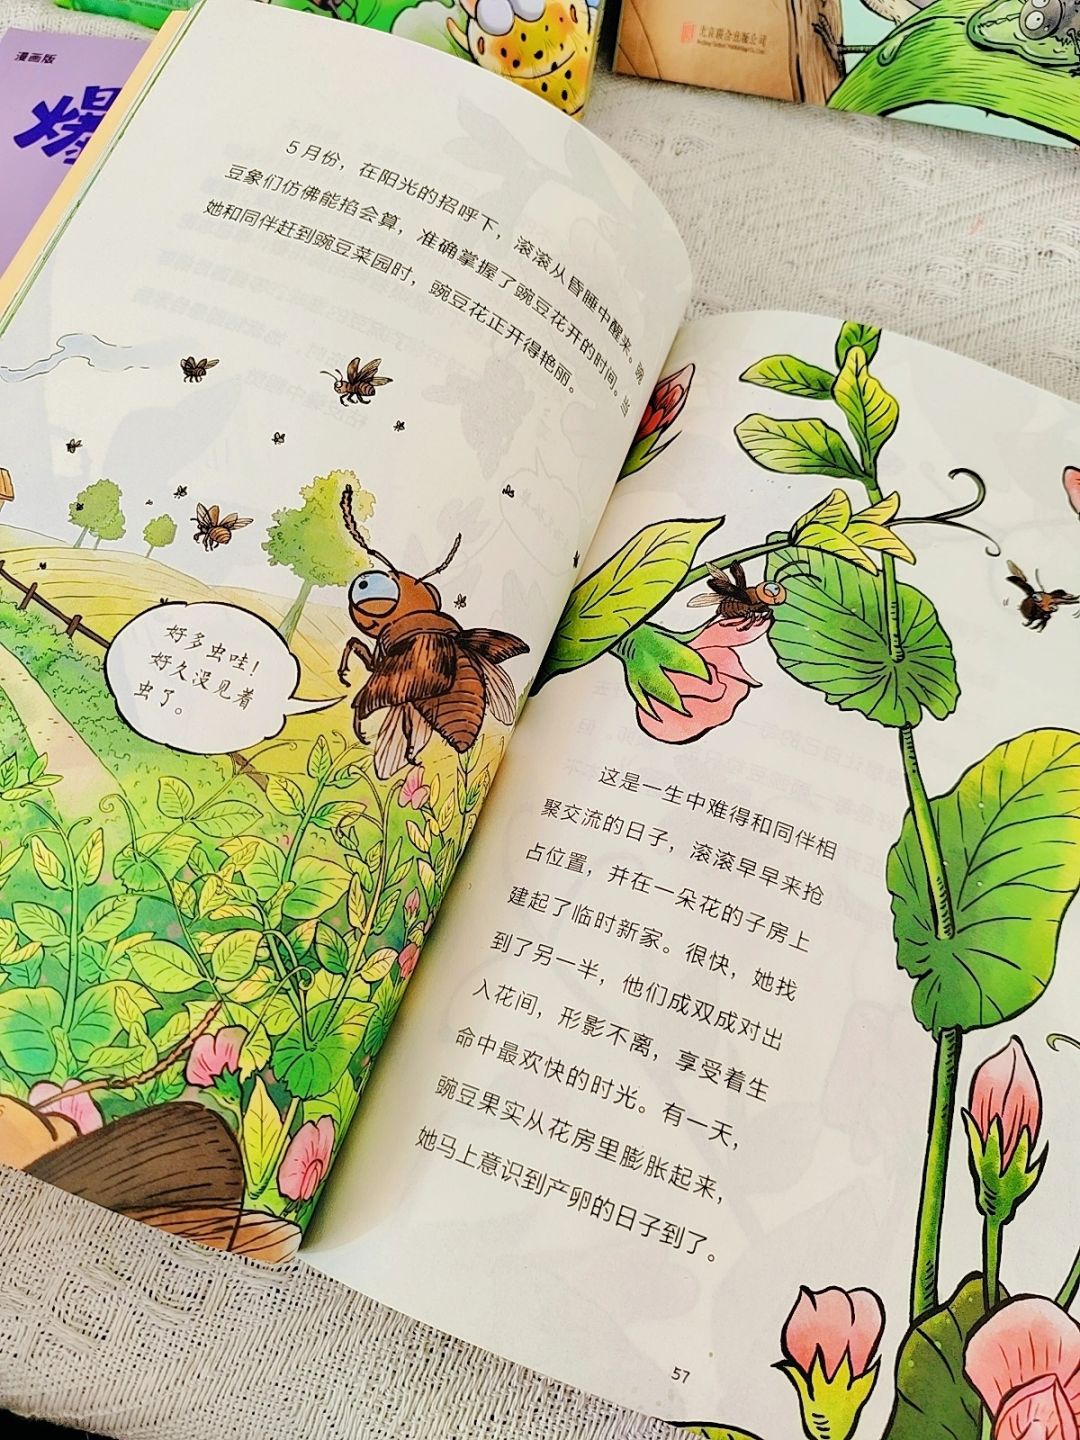 漫画版
爆
北京联合出版公司
5月份，在阳光的招呼下，滚滚从昏睡中醒来。豌
豆象们仿佛能掐会算，准确掌握了豌豆花开的时间。当
她和同伴赶到豌豆菜园时，豌豆花正开得艳丽。
好多虫哇！
好久没见着
虫了。
这是一生中难得和同伴相
聚交流的日子，滚滚早早来抢
占位置，并在一朵花的子房上
建起了临时新家。很快，她找
到了另一半，他们成双成对出
入花间，形影不离，享受着生
命中最欢快的时光。有一天，
豌豆果实从花房里膨胀起来，
她马上意识到产卵的日子到了。
57